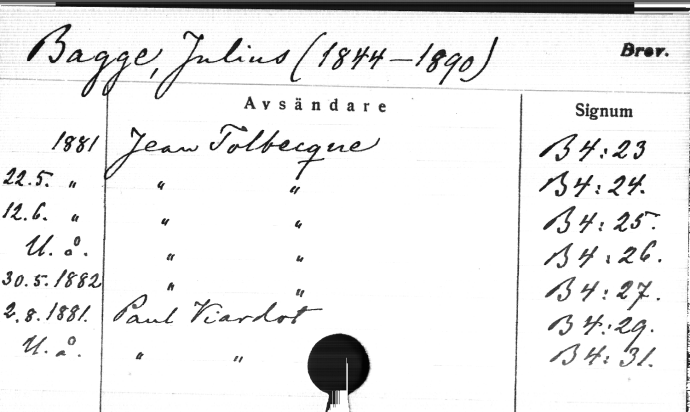 Bagge, Julius (1844—1890) Brev.
Avsändare Signum
1881 Jean Tolbecque B 4:23
22.5. " " " B 4:24.
12.6. " " " B 4:25.
U. å. " " B 4:26.
30.5.1882 " " B 4:27.
2.8.1881. Paul Viardot B 4:29.
U. å. " " B 4:31.